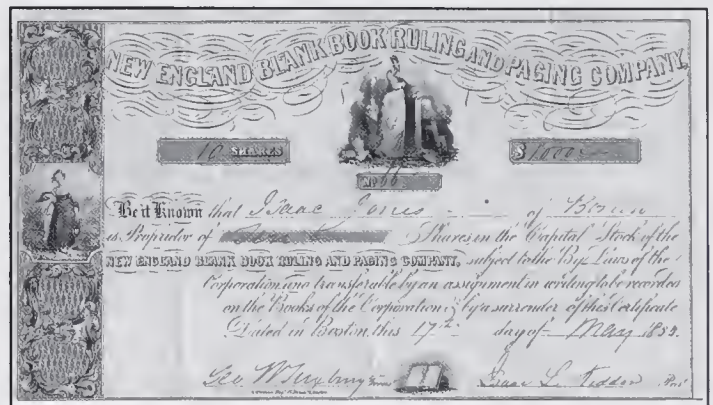 NEW ENGLAND BLANK BOOK RULING AND PAGING COMPANY.
10 SHARES $1000
No 66
Be it Known that Isaac Jones of
is Proprietor of Shares in the Capital Stock of the
NEW ENGLAND BLANK BOOK RULING AND PAGING COMPANY, subject to the By-Laws of the
Corporation, and transferable by an assignment in writing to be recorded
on the Books of the Corporation, & by a surrender of this Certificate
Dated in Boston, this 17th day of May 185
Geo. W. Isaac L.